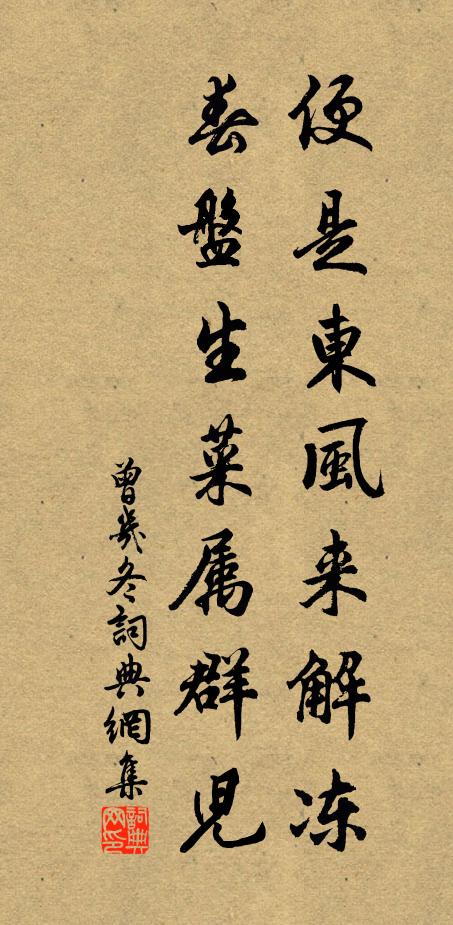 便是東風来解冻
春盤生菜属群児
曾幾冬詞典網集
詞典網印